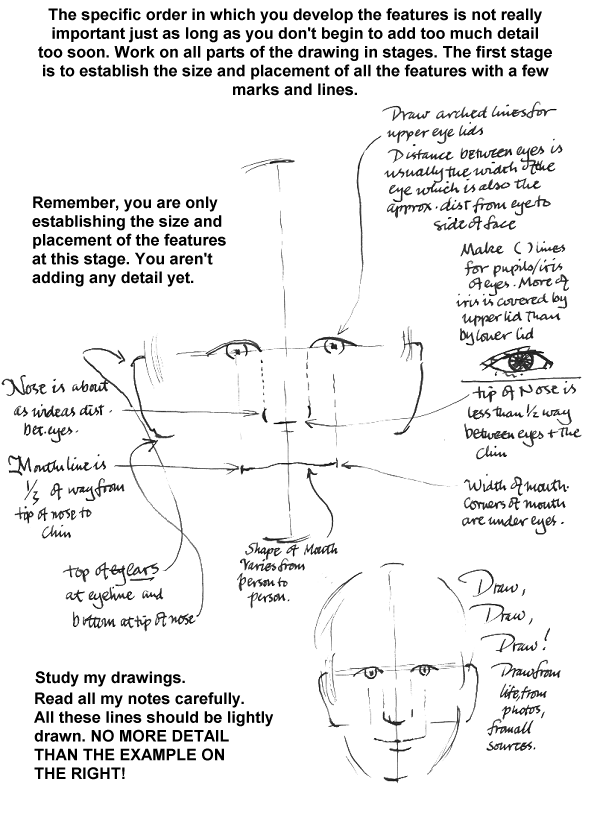 The specific order in which you develop the features is not really
important just as long as you don't begin to add too much detail
too soon. Work on all parts of the drawing in stages. The first stage
is to establish the size and placement of all the features with a few
marks and lines.
Draw arched lines for
upper eye lids
Distance between eyes is
usually the width of the
eye which is also the
approx. dist from eye to
side of face
Remember, you are only
establishing the size and
placement of the features
at this stage. You aren't
adding any detail yet.
Make ( ) lines
for pupils/iris
of eyes. More of
iris is covered by
upper lid than
by lower lid
Nose is about
as wide as dist.
bet. eyes.
tip of Nose is
less than 1/2 way
between eyes + the
Chin
Mouth line is
1/3 of way from
tip of nose to
Chin
Width of mouth.
Corners of mouth
are under eyes.
Shape of Mouth
Varies from
person to
person.
top of ears
at eyeline and
bottom at tip of nose
Draw,
Draw,
Draw!
Draw from
life, from
photos,
from all
sources.
Study my drawings.
Read all my notes carefully.
All these lines should be lightly
drawn. NO MORE DETAIL
THAN THE EXAMPLE ON
THE RIGHT!